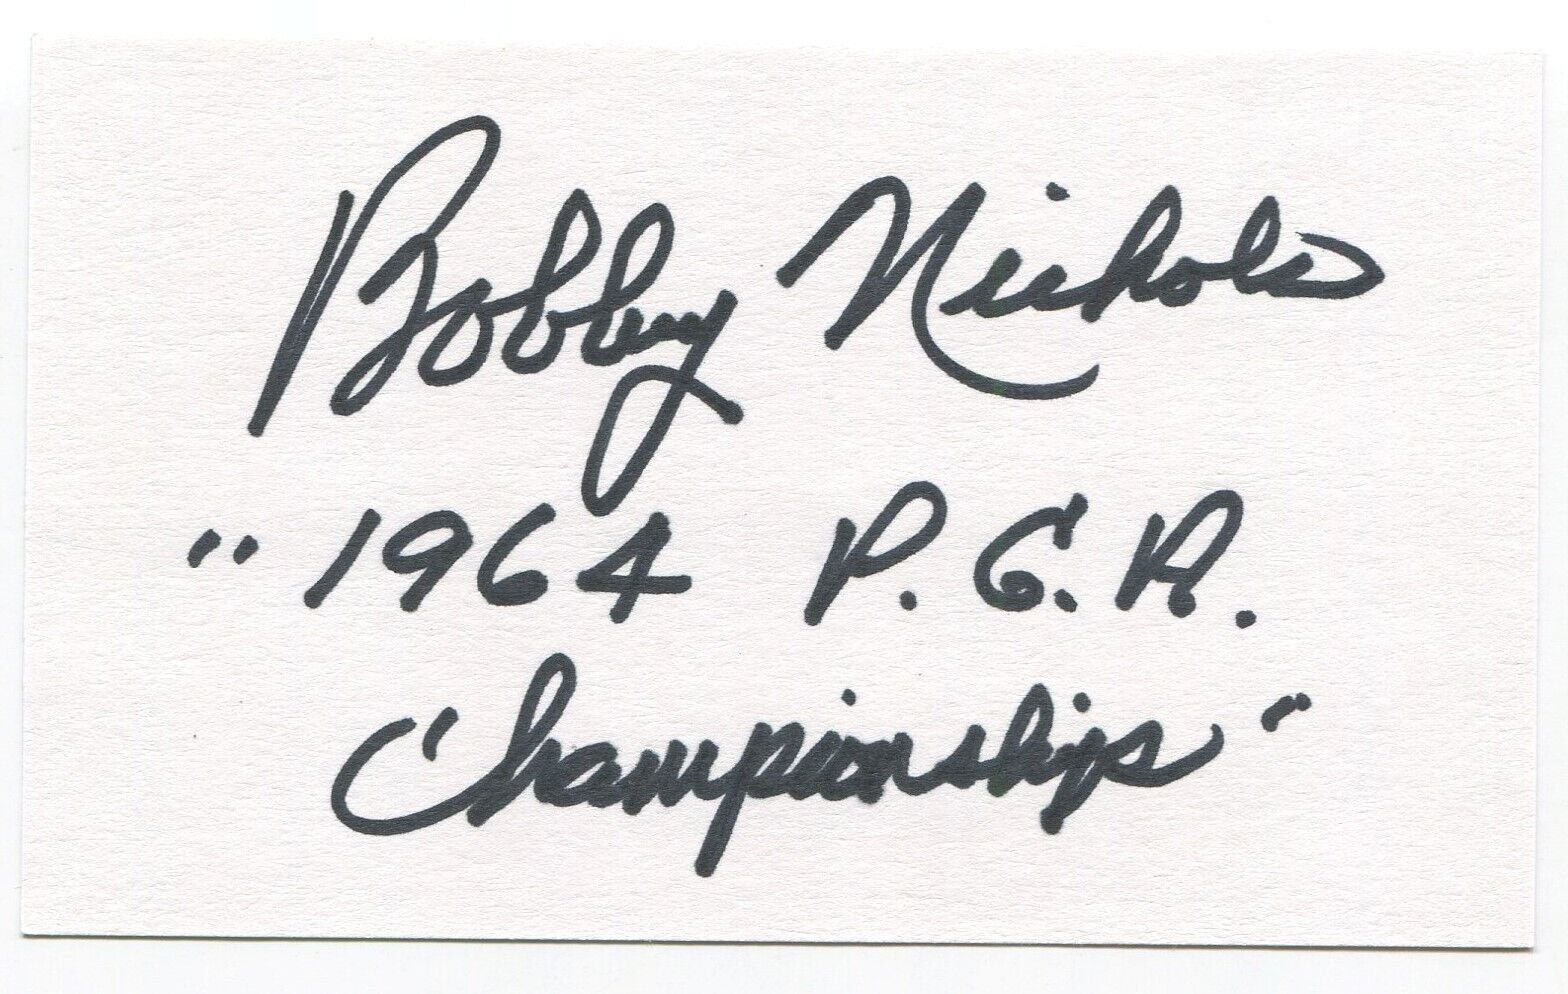 Bobby Nichols
"1964 P.G.A.
Championships"